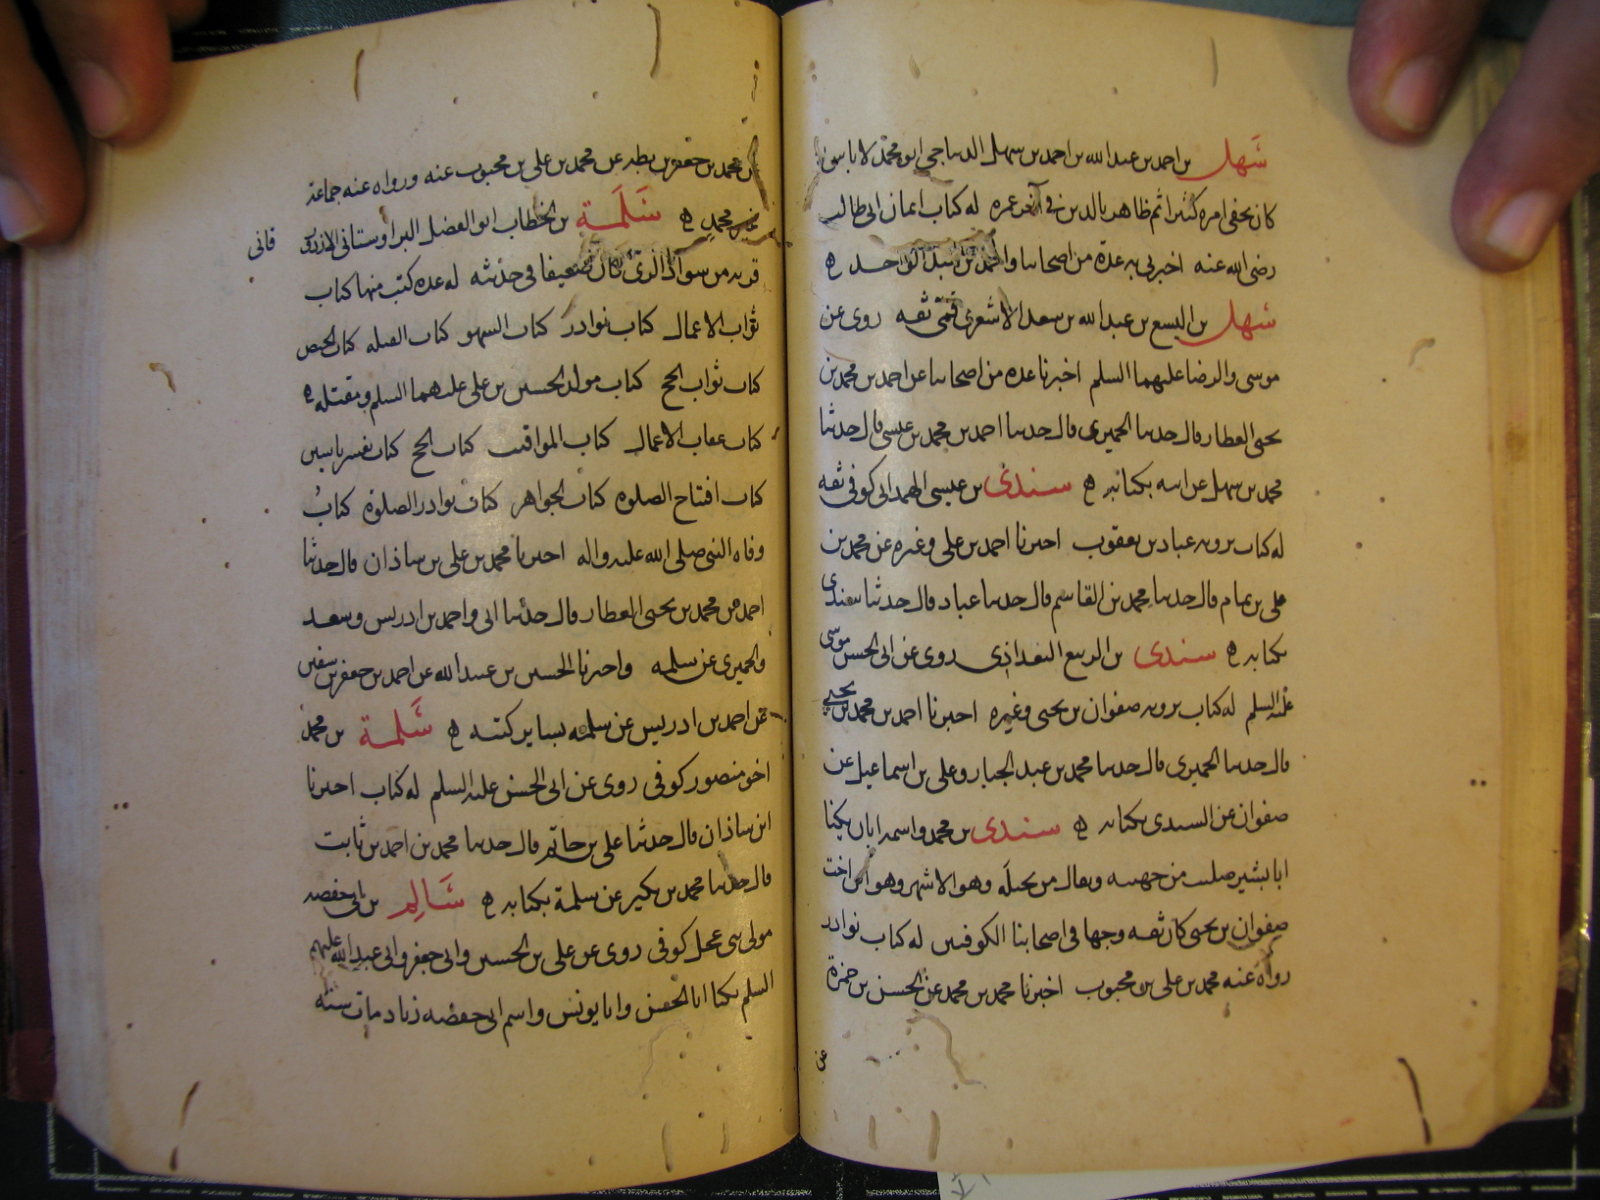 سهل بن احمد بن عبد الله بن احمد بن سهل الديباجي ابو محمد لا باس به
كان يخفى امره كثيرا ثم ظاهر بالدين في آخر عمره له كتاب ايمان ابى طالب
رضى الله عنه اخبرنى به عدة من اصحابنا واحمد بن عبد الواحد ه
سهل بن اليسع بن عبد الله بن سعد الاشعرى قمى ثقه روى عن
موسى والرضا عليهما السلم اخبرنا عده من اصحابنا عن احمد بن محمد بن
يحيى العطار قال حدثنا الحميرى قال حدثنا احمد بن محمد بن عيسى قال حدثنا
محمد بن سهل عن ابيه بكتابه ه سندى بن عيسى الهمدانى كوفى ثقه
له كتاب يرويه عباد بن يعقوب اخبرنا احمد بن على وغيره عن محمد بن
على بن تمام قال حدثنا محمد بن القاسم قال حدثنا عباد قال حدثنا سندى
بكتابه ه سندى بن الربيع البغدادى روى عن ابى الحسن موسى
عليه السلم له كتاب يرويه صفوان بن يحيى وغيره اخبرنا احمد بن محمد بن يحيى
قال حدثنا الحميرى قال حدثنا محمد بن عبد الجبار وعلى بن اسماعيل عن
صفوان عن السندى بكتابه ه سندى بن محمد واسمه ابان يكنا
ابا بشير صليب من جهينه ويقال من بجيله وهو الاشهر وهو ابن اخت
صفوان بن يحيى كان ثقه وجها في اصحابنا الكوفيين له كتاب نوادر
رواه عنه محمد بن على بن محبوب اخبرنا محمد بن محمد عن الحسن بن حمزة
عن
عن محمد بن جعفر بن بطه عن محمد بن على بن محبوب عنه ورواه عنه جماعة
غير محمد ه سلمة بن الخطاب ابو الفضل البراوستانى الازدورقانى
قريه من سواد الرى كان ضعيفا في حديثه له عده كتب منها كتاب
ثواب الاعمال كتاب نوادر كتاب السهو كتاب القبله كتاب الحيض
كتاب ثواب الحج كتاب مولد الحسين بن على عليهما السلم ومقتله ه
كتاب عقاب الاعمال كتاب المواقيت كتاب الحج كتاب تفسير ياسين
كتاب افتتاح الصلوة كتاب الجواهر كتاب نوادر الصلوة كتاب
وفاة النبى صلى الله عليه واله اخبرنا محمد بن على بن شاذان قال حدثنا
احمد بن محمد بن يحيى العطار قال حدثنا ابى واحمد بن ادريس وسعد
والحميرى عن سلمه واخبرنا الحسين بن عبيد الله عن احمد بن جعفر بن سفين
عن احمد بن ادريس عن سلمه بساير كتبه ه سلمة بن محمد
اخو منصور كوفى روى عن ابى الحسن عليه السلم له كتاب اخبرنا
ابن شاذان قال حدثنا على بن حاتم قال حدثنا محمد بن احمد بن ثابت
قال حدثنا محمد بن بكير عن سلمة بكتابه ه سالم بن ابى حفصه
مولى بنى عجل كوفى روى عن على بن الحسين وابى جعفر وابى عبد الله عليهم
السلم يكنا ابا الحسن وابا يونس واسم ابى حفصه زياد مات سنه